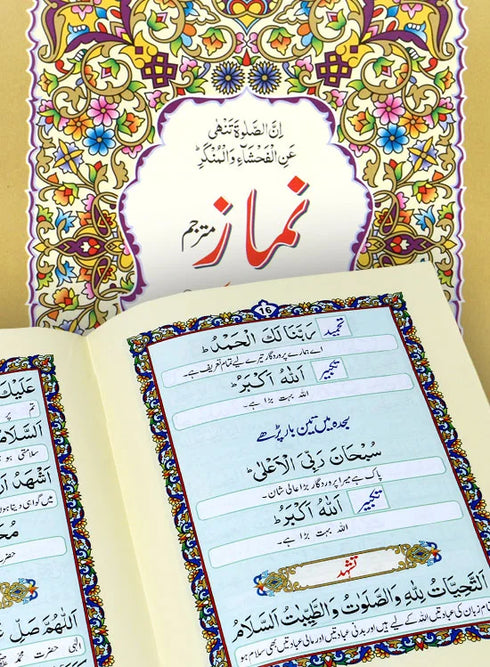 اِنَّ الصَّلٰوةَ تَنْهٰى
عَنِ الْفَحْشَآءِ وَالْمُنْكَرِ ط
نماز
مترجم
16
تحمید رَبَّنَا لَکَ الْحَمْدُ ط
اے ہمارے پروردگار تیرے لیے تمام تعریف ہے۔
تکبیر اَللّٰهُ اَکْبَرُ ط
اللہ بہت بڑا ہے۔
سجدہ میں تین بار پڑھے
سُبْحَانَ رَبِّیَ الْاَعْلٰی ط
پاک ہے میرا پروردگار بڑا عالی شان۔
تکبیر اَللّٰهُ اَکْبَرُ ط
اللہ بہت بڑا ہے۔
تشہد
اَلتَّحِیَّاتُ لِلّٰهِ وَالصَّلَوٰتُ وَالطَّیِّبٰتُ اَلسَّلَامُ
تمام زبان کی عبادتیں اللہ کے لیے ہیں اور بدنی عبادتیں اور مالی عبادتیں بھی سلام ہو
عَلَیْکَ
تم پر
اَلسَّلَامُ
سلامتی ہو
اَشْهَدُ اَنْ
میں گواہی دیتا ہوں
حضرت
اَللّٰهُمَّ صَلِّ عَلٰی
الٰہی حضرت محمد